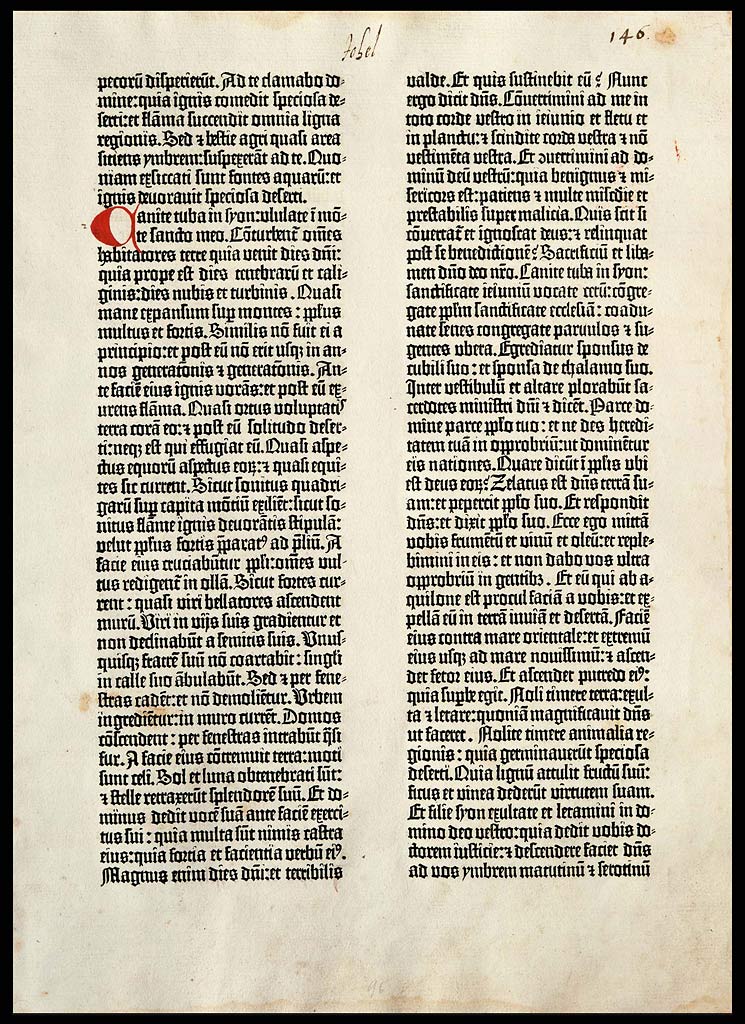 Johel
146.
pecorū disperierūt. Ad te clamabo do⸗
mine:quia ignis comedit speciosa de⸗
serti:et flāma succendit omnia ligna
regionis. Sed ⁊ bestie agri quasi area
sitiens ymbrem:suspexerāt ad te. Quo⸗
niam exsiccati sunt fontes aquarū:et
ignis devoravit speciosa deserti.
Canite tuba in syon:ululate ī mō⸗
te sancto meo. Cōturbent̄ om̄es
habitatores terre quia venit dies dn̄i:
quia prope est dies tenebrarū et cali⸗
ginis:dies nubis et turbinis. Quasi
mane expansum sup̄ montes: pp̄lus
multus et fortis. Similis nō fuit ei a
principio:et post eū nō erit usq; in an⸗
nos generatōnis ⁊ generatōnis. An⸗
te faciē eius ignis vorās:et post eū ex⸗
urens flāma. Quasi ortus voluptatis
terra corā eo:⁊ post eū solitudo deser⸗
ti:neq; est qui effugiat eū. Quasi aspe⸗
ctus equorū aspectus eoꝝ:⁊ quasi equi⸗
tes sic current. Sicut sonitus quadri⸗
garū sup̄ capita mōtiū exiliēt:sicut so⸗
nitus flāme ignis devorātis stipulā:
velut pp̄lus fortis p̄parat⁹ ad p̄liū. A
facie eius cruciabūtur pp̄li:om̄es vul⸗
tus redigent̄ in ollā. Sicut fortes cur⸗
rent: quasi viri bellatores ascendent
murū. Viri in viis suis gradientur et
non declinabūt a semitis suis. Unus⸗
quisq; fratrē suū nō coartabit: singli
in calle suo ābulabūt. Sed ⁊ per fene⸗
stras cadēt:et nō demoliētur. Urbem
ingrediētur:in muro currēt. Domos
cōscendent: per fenestras intrabūt q̄si
fur. A facie eius cōtremuit terra:moti
sunt celi. Sol et luna obtenebrati sūt:
⁊ stelle retraxerūt splendorē suū. Et do⸗
minus dedit vocē suā ante faciē exerci⸗
tus sui: quia multa sūt nimis castra
eius:quia fortia et facientia verbū ei⁹.
Magnus etim dies dn̄i:et terribilis
valde. Et quis sustinebit eū? Nunc
ergo dicit dn̄s. Cōvertimini ad me in
toto corde vestro in ieiunio et fletu et
in planctu:⁊ scindite corda vestra ⁊ nō
vestimēta vestra. Et ↄvertimini ad do⸗
minū deū vestrū:quia benignus ⁊ mi⸗
sericors est:patiens ⁊ multe mīsc̄die et
prestabilis super malicia. Quis scit si
cōvertat̄ et ignoscat deus:⁊ relinquat
post se benedictionē? Sacrificiū et liba⸗
men dn̄o deo nr̄o. Canite tuba in syon:
sanctificate ieiuniū vocate cetū:cōgre⸗
gate pp̄lm sanctificate ecclesiā: coadu⸗
nate senes congregate parvulos ⁊ su⸗
gentes ubera. Egrediatur sponsus de
cubili suo: et sponsa de thalamo suo.
Inter vestibulū et altare plorabūt sa⸗
cerdotes ministri dn̄i ⁊ dicēt. Parce do⸗
mine parce pp̄lo tuo: et ne des heredi⸗
tatem tuā in opprobriū:ut dominētur
eis nationes. Quare dicūt ī pp̄lis ubi
est deus eoꝝ? Zelatus est dn̄s terrā su⸗
am:et pepercit pp̄lo suo. Et respondit
dn̄s:et dixit pp̄lo suo. Ecce ego mittā
vobis frumētū et vinū et oleū:et reple⸗
bimini in eis: et non dabo vos ultra
opprobriū in gentibꝫ. Et eū qui ab a⸗
quilone est procul faciā a vobis:et ex⸗
pellā eū in terrā inviā et desertā. Faciē
eius contra mare orientale:et extremū
eius usq; ad mare novissimū:⁊ ascen⸗
det fetor eius. Et ascendet putredo ei⁹:
quia sup̄be egit. Noli timere terra:exul⸗
ta ⁊ letare:quoniā magnificavit dn̄s
ut faceret. Nolite timere animalia re⸗
gionis: quia germinaverūt speciosa
deserti. Quia lignū attulit fructū suū:
ficus et vinea dederūt virtutem suam.
Et filie syon exultate et letamini in do⸗
mino deo vestro:quia dedit vobis do⸗
ctorem iusticie:⁊ descendere faciet dn̄s
ad vos ymbrem matutinū ⁊ serotinū